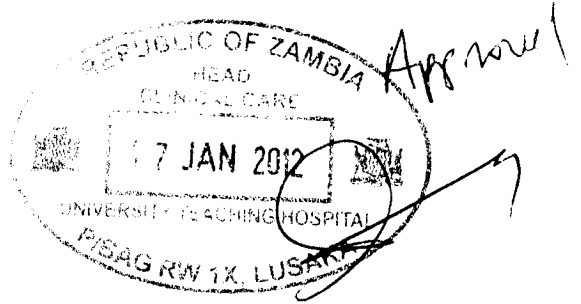 REPUBLIC OF ZAMBIA
HEAD
CLINICAL CARE
17 JAN 2012
UNIVERSITY TEACHING HOSPITAL
P/BAG RW 1X, LUSAKA
Approved